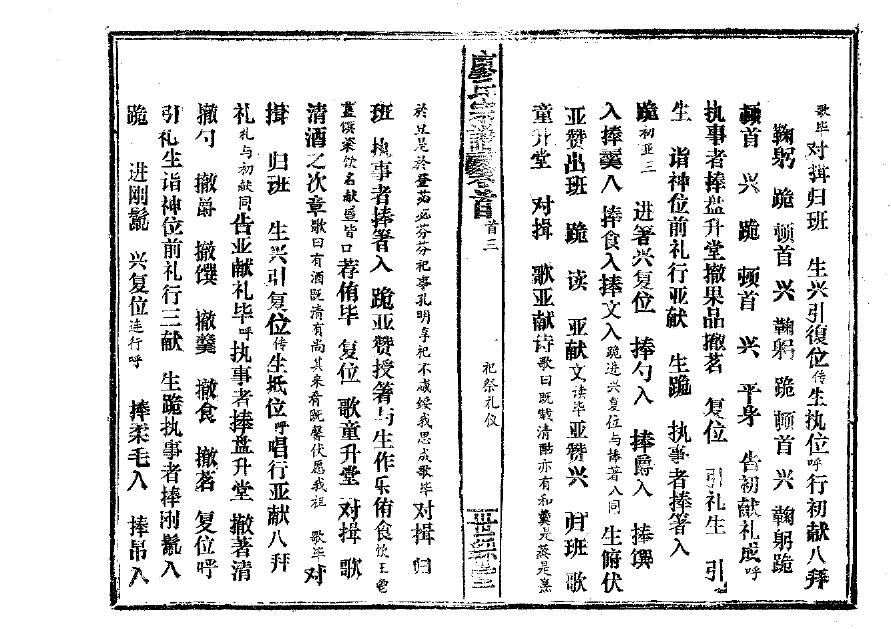 歌毕对揖归班　生兴引復位传生执位呼行初献八拜
鞠躬　跪　顿首　兴　鞠躬　跪　顿首　兴　鞠躬跪
顿首　兴　跪　顿首　兴　平身　告初献礼成呼
执事者捧盘升堂撤果品撤茗　复位　引礼生　引
生　诣神位前礼行亚献　生跪　执事者捧箸入
跪初亚三　进箸兴复位　捧勺入　捧爵入　捧馔
入捧羹入　捧食入捧文入跪进兴复位与捧著入同　生俯伏
亚赞出班　跪　读　亚献文读毕亚赞兴　归班　歌
童升堂　对揖　歌亚献诗歌曰既载清酤亦有和羹是蒸是烹
廖氏宗谱　卷首　首三　一　祀祭礼仪　世经堂
於豆是於登苾苾芬芬祀事孔明享祀不忒绥我思成歌毕对揖　归
班　执事者捧箸入　跪亚赞授箸与生作乐侑食
荐侑毕　复位　歌童升堂　对揖　歌
清酒之次章歌曰有酒既清有尚其来肴既馨伏愿我祖　歌毕对
揖　归班　生兴引复位传生抵位呼唱行亚献八拜
礼礼与初献同告亚献礼毕呼执事者捧盘升堂　撤著清
撤勺　撤爵　撤馔　撤羹　撤食　撤茗　复位呼
引礼生诣神位前礼行三献　生跪执事者捧刚鬣入
跪　进刚鬣　兴复位连行呼　捧柔毛入　捧帛入